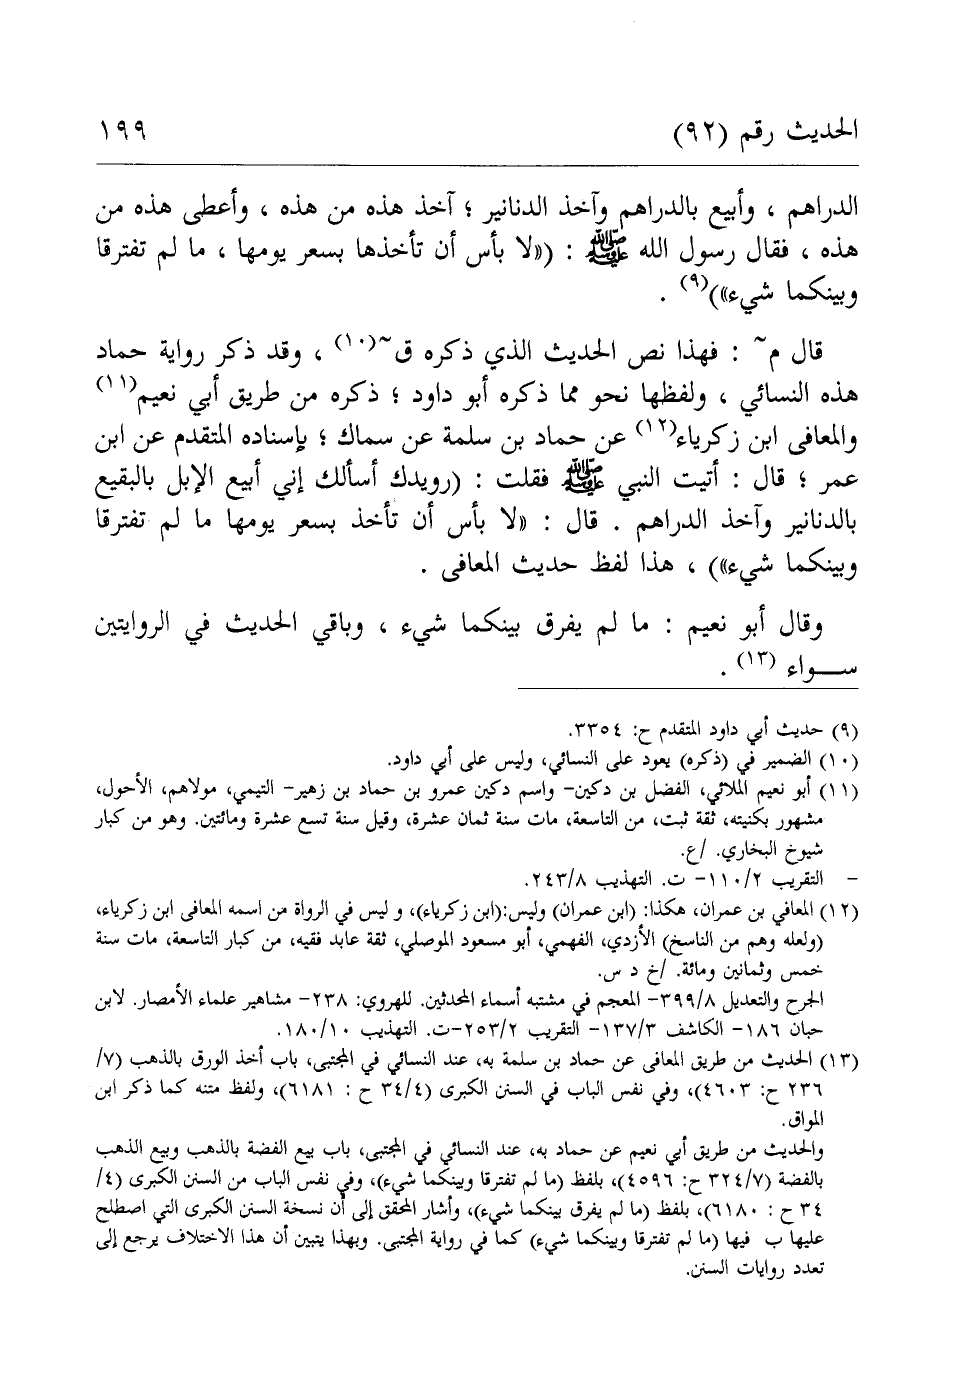 الحديث رقم (٩٢) ١٩٩
الدراهم ، وأبيع بالدراهم وآخذ الدنانير ؛ آخذ هذه من هذه ، وأعطى هذه من
هذه ، فقال رسول الله ﷺ : («لا بأس أن تأخذها بسعر يومها ، ما لم تفترقا
وبينكما شيء»)(٩) .
قال م~ : فهذا نص الحديث الذي ذكره ق~(١٠) ، وقد ذكر رواية حماد
هذه النسائي ، ولفظها نحو مما ذكره أبو داود ؛ ذكره من طريق أبي نعيم(١١)
والمعافى ابن زكرياء(١٢) عن حماد بن سلمة عن سماك ؛ بإسناده المتقدم عن ابن
عمر ؛ قال : أتيت النبي ﷺ فقلت : (رويدك أسألك إني أبيع الإبل بالبقيع
بالدنانير وآخذ الدراهم . قال : «لا بأس أن تأخذ بسعر يومها ما لم تفترقا
وبينكما شيء») ، هذا لفظ حديث المعافى .
وقال أبو نعيم : ما لم يفرق بينكما شيء ، وباقي الحديث في الروايتين
ســـواء (١٣) .
(٩) حديث أبي داود المتقدم ح: ٣٣٥٤.
(١٠) الضمير في (ذكره) يعود على النسائي، وليس على أبي داود.
(١١) أبو نعيم الملائي، الفضل بن دكين- واسم دكين عمرو بن حماد بن زهير- التيمي، مولاهم، الأحول،
مشهور بكنيته، ثقة ثبت، من التاسعة، مات سنة ثمان عشرة، وقيل سنة تسع عشرة ومائتين. وهو من كبار
شيوخ البخاري. /ع.
- التقريب ١١٠/٢- ت. التهذيب ٢٤٣/٨.
(١٢) المعافي بن عمران، هكذا: (ابن عمران) وليس:(ابن زكرياء)، و ليس في الرواة من اسمه المعافى ابن زكرياء،
(ولعله وهم من الناسخ) الأزدي، الفهمي، أبو مسعود الموصلي، ثقة عابد فقيه، من كبار التاسعة، مات سنة
خمس وثمانين ومائة. /خ د س.
الجرح والتعديل ٣٩٩/٨- المعجم في مشتبه أسماء المحدثين. للهروي: ٢٣٨- مشاهير علماء الأمصار. لابن
حبان ١٨٦- الكاشف ١٣٧/٣- التقريب ٢٥٣/٢-ت. التهذيب ١٨٠/١٠.
(١٣) الحديث من طريق المعافى عن حماد بن سلمة به، عند النسائي في المجتبى، باب أخذ الورق بالذهب (٧/
٢٣٦ ح: ٤٦٠٣)، وفي نفس الباب في السنن الكبرى (٣٤/٤ ح : ٦١٨١)، ولفظ متنه كما ذكر ابن
المواق.
والحديث من طريق أبي نعيم عن حماد به، عند النسائي في المجتبى، باب بيع الفضة بالذهب وبيع الذهب
بالفضة (٣٢٤/٧ ح: ٤٥٩٦)، بلفظ (ما لم تفترقا وبينكما شيء)، وفي نفس الباب من السنن الكبرى (٤/
٣٤ ح : ٦١٨٠)، بلفظ (ما لم يفرق بينكما شيء)، وأشار المحقق إلى أن نسخة السنن الكبرى التي اصطلح
عليها ب فيها (ما لم تفترقا وبينكما شيء) كما في رواية المجتبى. وبهذا يتبين أن هذا الاختلاف يرجع إلى
تعدد روايات السنن.